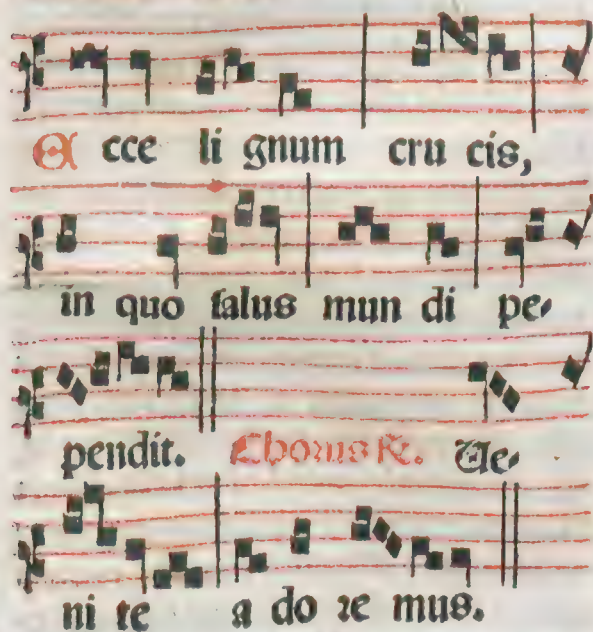 Ecce li gnum cru cis,
in quo salus mun di pe-
pendit. Chorus ℟. Ve-
ni te a do re mus.